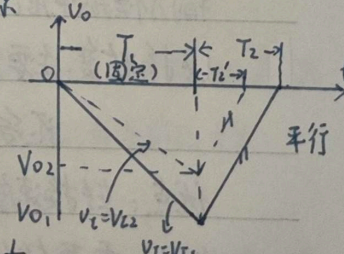 V₀
T₁ T₂
(固定) T₂'
0
平行
V₀₂
V₀₁
V_I=V_I2
V_I=V_I1